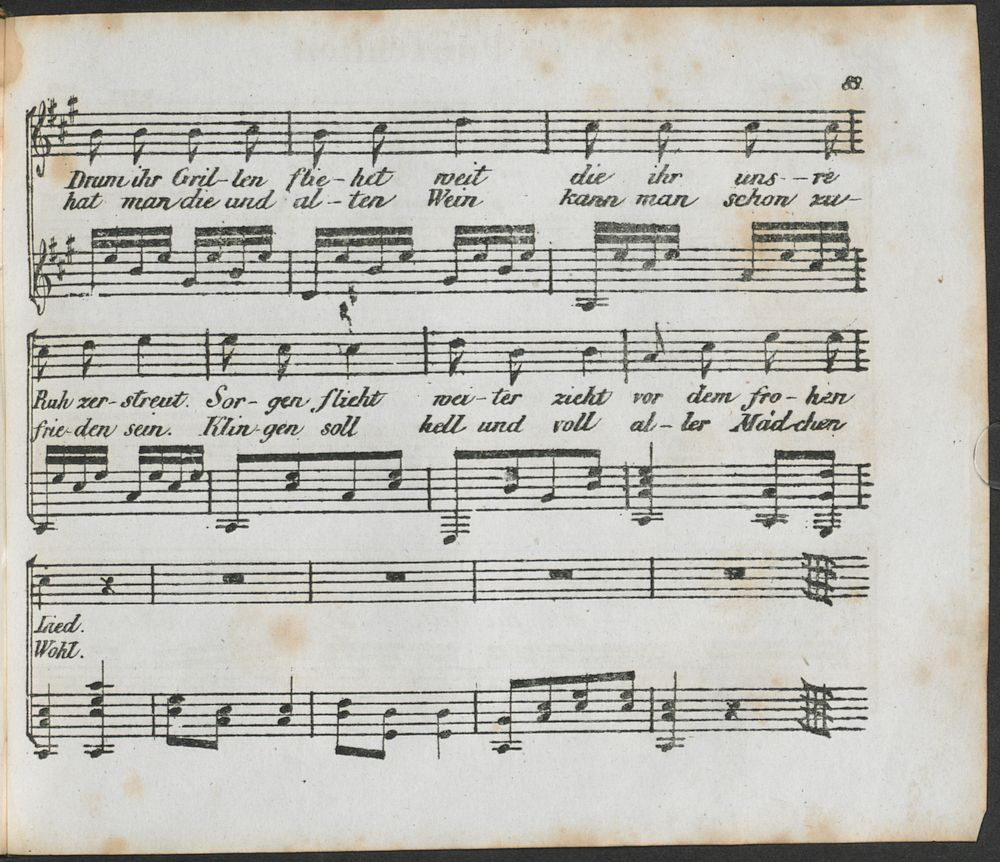 88.
Drum ihr Gril-len flie-het weit die ihr uns--re
hat man die und al-ten Wein kann man schon zu-
Ruh zer-streut. Sor-gen flieht wei-ter zieht vor dem fro-hen
frie-den sein. Klin-gen soll hell und voll al-ler Mäd-chen
Lied.
Wohl.